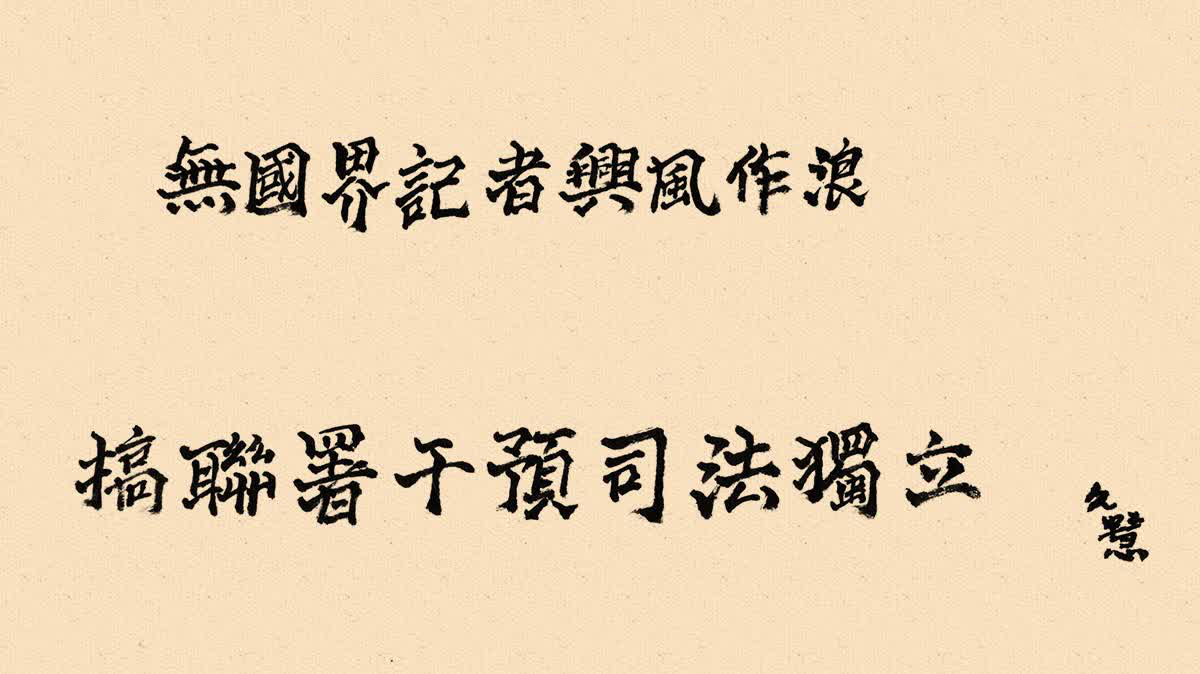 無國界記者興風作浪
搞聯署干預司法獨立